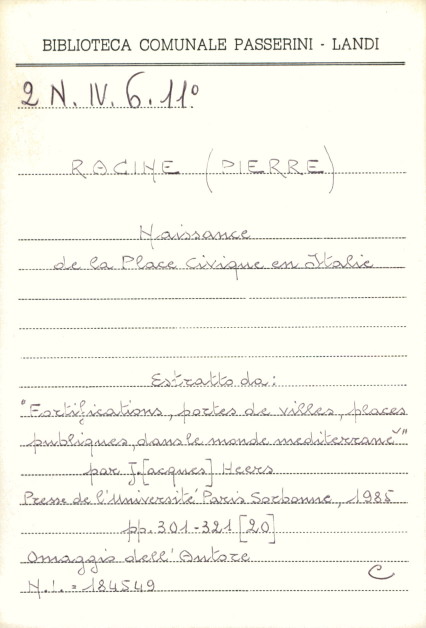 BIBLIOTECA COMUNALE PASSERINI - LANDI
2 N. IV. 6. 11º
RACINE (PIERRE)
Naissance
de la Place Civique en Italie
Estratto da:
"Fortifications, portes de villes, places
publiques, dans le monde mediterrané"
par J.[acques] Heers
Presse de l'Université Paris Sorbonne, 1985
pp. 301-321 [20]
Omaggio dell'Autore
N.i. = 184549
C